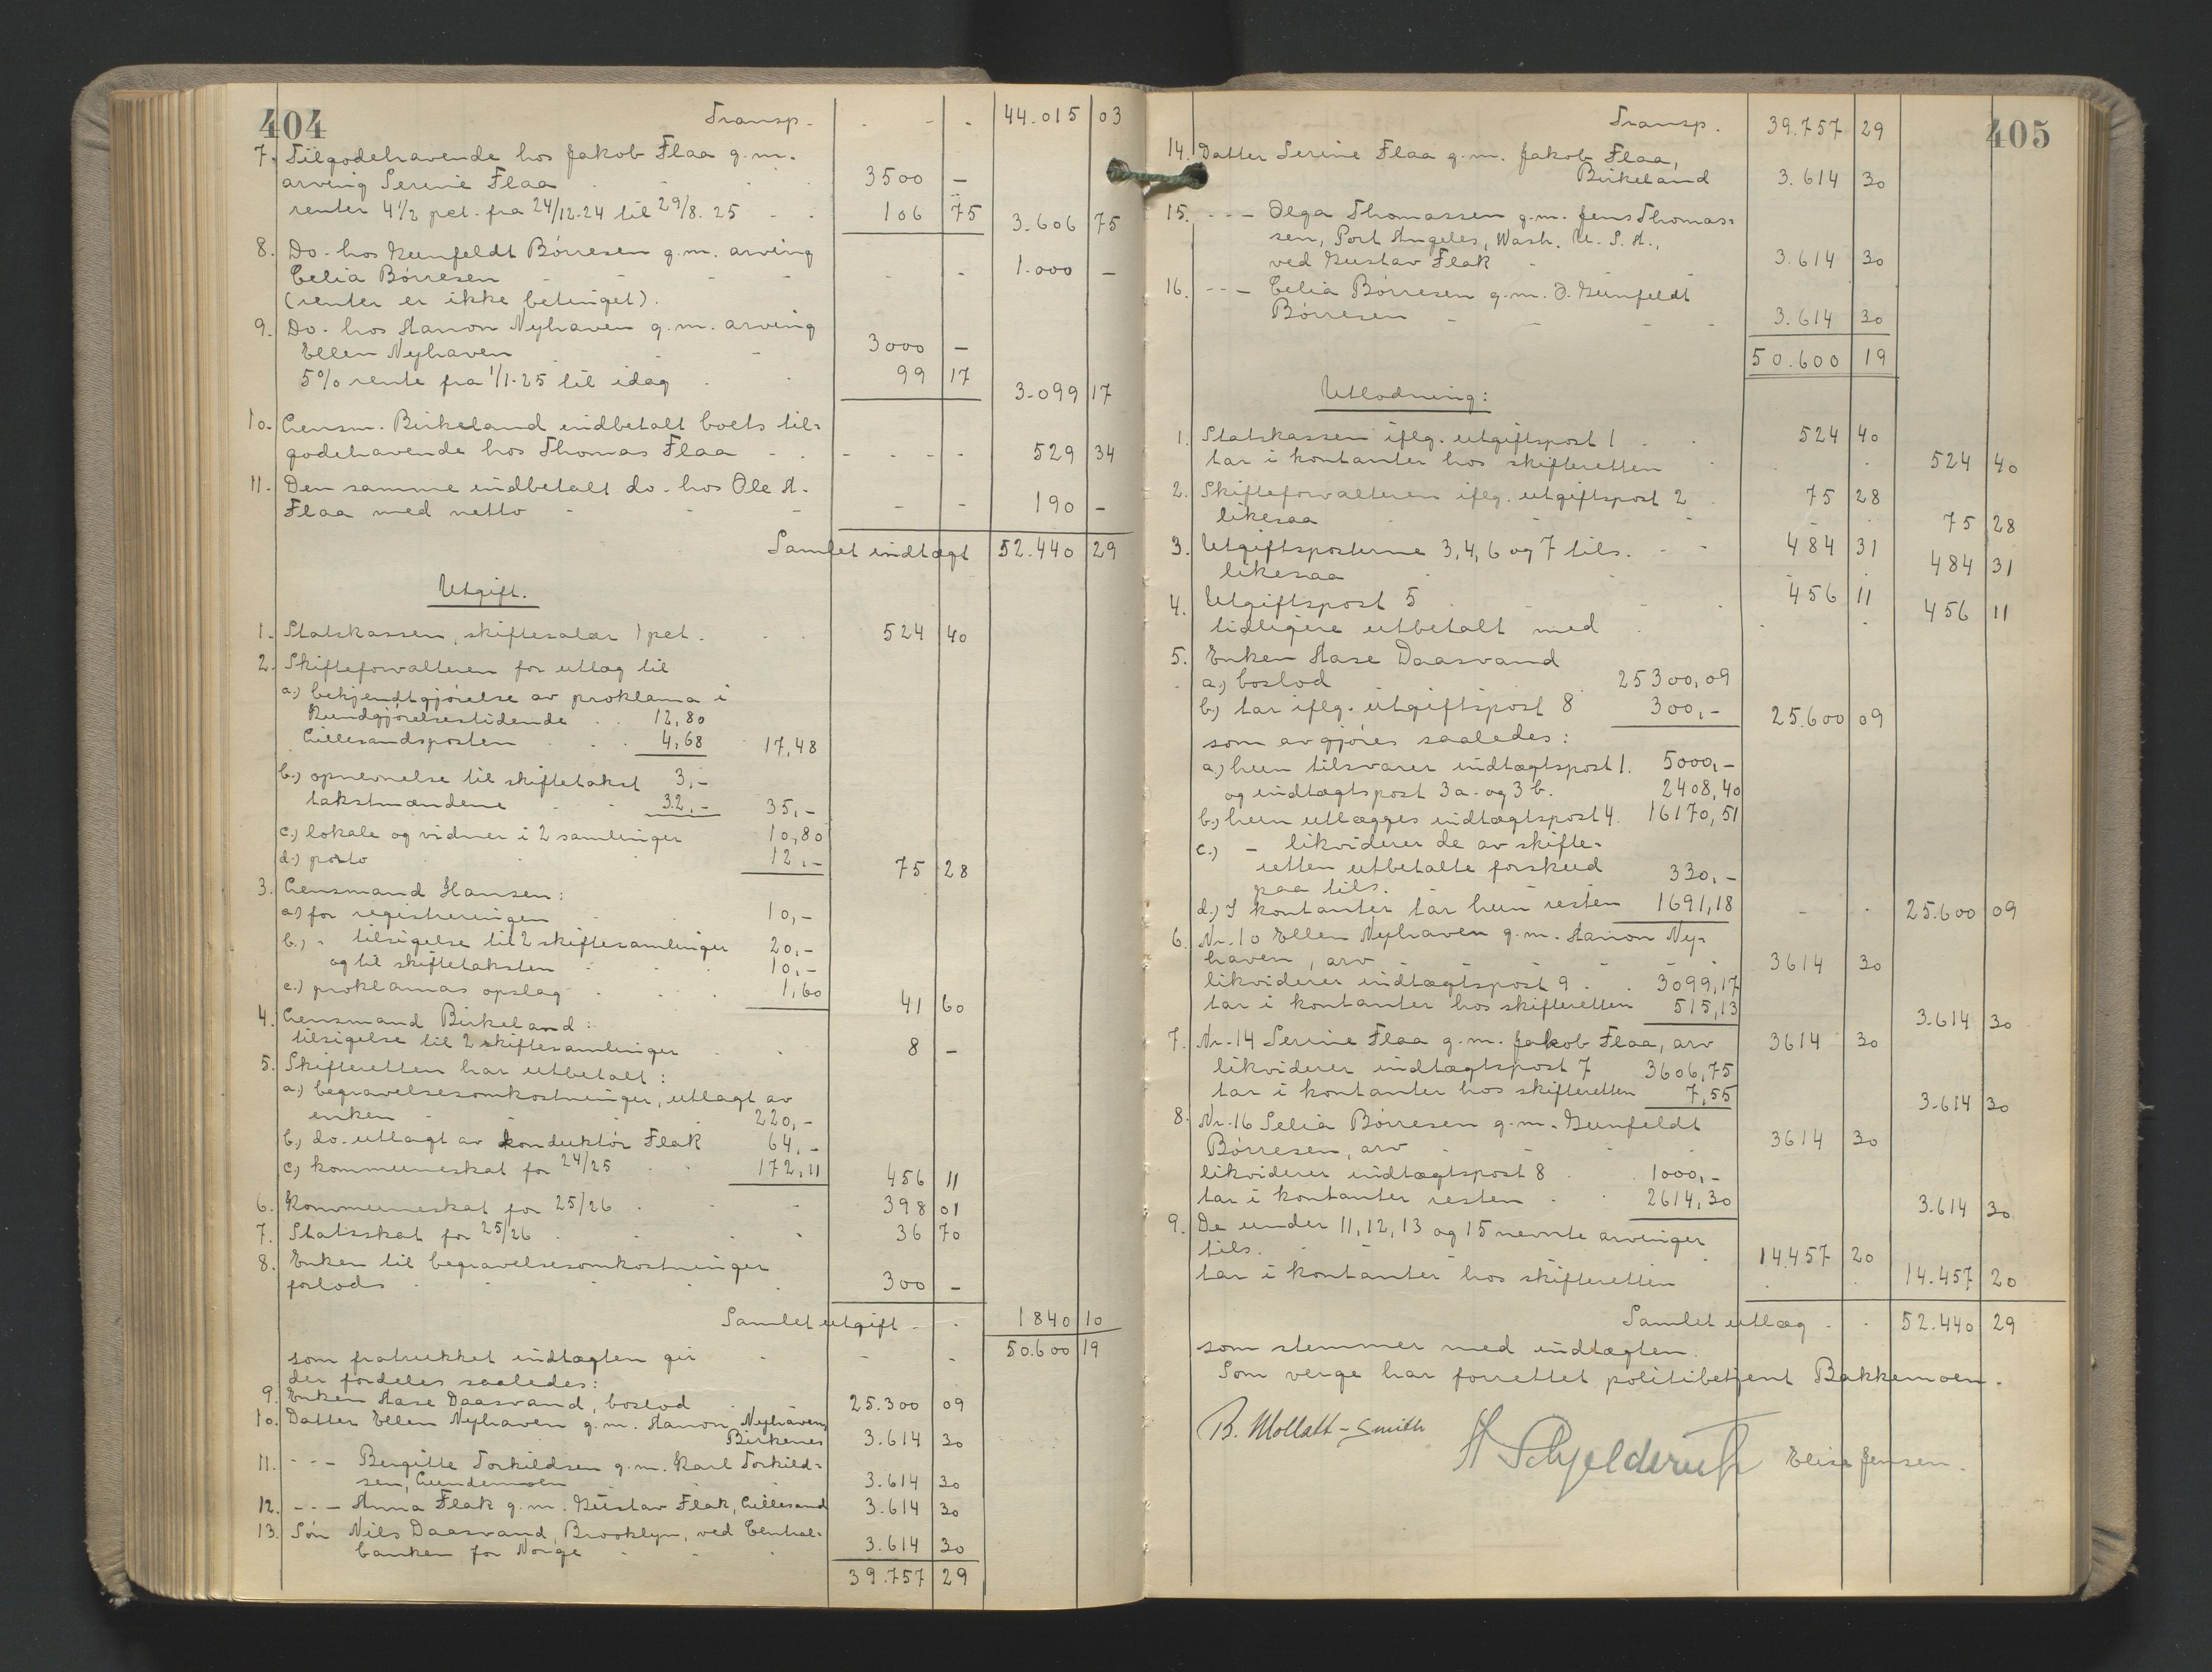 404
Transp. - - - 44.015 03
7. Tilgodehavende hos Jakob Flaa g.m.
arving Serine Flaa 3500 -
renter 4½ pct. fra 24/12-24 til 29/8. 25 - - 106 75 3.606 75
8. Do. hos Gunfeldt Börresen g.m. arving
Celia Börresen - - - - 1.000 -
(renter er ikke betinget).
9. Do. hos Hanon Nyhaven g.m. arving
Ellen Nyhaven - - 3000 -
5% rente fra 1/1-25 til idag 99 17 3.099 17
10. Lensm. Birkeland indbetalt boets til=
godehavende hos Thomas Flaa - - - - - 529 34
11. Den samme indbetalt do. hos Ole A.
Flaa med netto - - - - 190 -
Samlet indtægt 52.440 29
Utgift.
1. Statskassen, skiftesalær 1 pct. 524 40
2. Skifteforvalteren for utlæg til
a.) bekjendtgjörelse av proklama i
Kundgjörelsestidende 12,80
Lillesandsposten 4,68 17,48
b.) opnevnelse til skiftetakst 3,-
takstmændene 32,- 35,-
c.) lokale og vidner i 2 samlinger 10,80
d.) porto 12,- 75 28
3. Lensmand Hansen:
a.) for registreringen 10,-
b.) " tilsigelse til 2 skiftesamlinger 20,-
og til skiftetaksten 10,-
c.) proklamas opslag 1,60 41 60
4. Lensmand Birkeland:
tilsigelse til 2 skiftesamlinger 8 -
5. Skifteretten har utbetalt:
a.) begravelsesomkostninger, utlagt av
enken 220,-
b.) do. utlagt av konduktör Flak 64,-
c.) kommuneskat for 24/25 172,11 456 11
6. Kommuneskat for 25/26 398 01
7. Statsskat for 25/26 36 70
8. Enken til begravelsesomkostninger
forlods 300 -
Samlet utgift - - 1840 10
som fratrukket indtægten gir - - - 50.600 19
der fordeles saaledes:
9. Enken Aase Daasvand, boslod 25.300 09
10. Datter Ellen Nyhaven g.m. Hanon Nyhaven,
Birkenes 3.614 30
11. - - - Bergitte Torkildsen g.m. Karl Torkild=
sen, Lundemoen 3.614 30
12. - - - Anna Flak g.m. Gustav Flak, Lillesand 3.614 30
13. Sön Nils Daasvand, Brooklyn, ved Central=
banken for Norge 3.614 30
39.757 29
405
Transp. 39.757 29
14. Datter Serine Flaa g.m. Jakob Flaa,
Birkeland 3.614 30
15. - - - Olga Thomassen g.m. Jens Thomas=
sen, Port Angeles, Wash. U.S.A.,
ved Gustav Flak 3.614 30
16. - - - Celia Börresen g.m. O. Gunfeldt
Börresen - - - - 3.614 30
50.600 19
Utlodning:
1. Statskassen iflg. utgiftspost 1 524 40
tar i kontanter hos skifteretten 524 40
2. Skifteforvalteren iflg. utgiftspost 2 75 28
likesaa 75 28
3. Utgiftsposterne 3, 4, 6 og 7 tils. 484 31
likesaa 484 31
4. Utgiftspost 5 456 11
tidligere utbetalt med 456 11
5. Enken Aase Daasvand
a.) boslod 25300,09
b.) tar iflg. utgiftspost 8 300,- 25.600 09
som avgjöres saaledes:
a.) hun tilsvarer indtægtspost 1. 5000,-
og indtægtspost 3a. og 3b. 2408,40
b.) hun utlægges indtægtspost 4. 16170,51
c.) - likviderer de av skifte=
retten utbetalte forskud
paa tils. 330,-
d.) I kontanter tar hun resten 1691,18 25.600 09
6. Nr. 10 Ellen Nyhaven g.m. Hanon Ny=
haven, arv 3614 30
likviderer indtægtspost 9 3099,17
tar i kontanter hos skifteretten 515,13 3.614 30
7. Nr. 14 Serine Flaa g.m. Jakob Flaa, arv 3614 30
likviderer indtægtspost 7 3606,75
tar i kontanter hos skifteretten 7,55 3.614 30
8. Nr. 16 Selia Börresen g.m. Gunfeldt
Börresen, arv 3614 30
likviderer indtægtspost 8 1000,-
tar i kontanter resten 2614,30 3.614 30
9. De under 11, 12, 13 og 15 nevnte arvinger
tils. 14.457 20
tar i kontanter hos skifteretten 14.457 20
Samlet utlæg 52.440 29
som stemmer med indtægten.
Som verge har forrettet politibetjent Bakkemoen.
B. Mollatt-Smith A Schjelderup Elise Jensen.